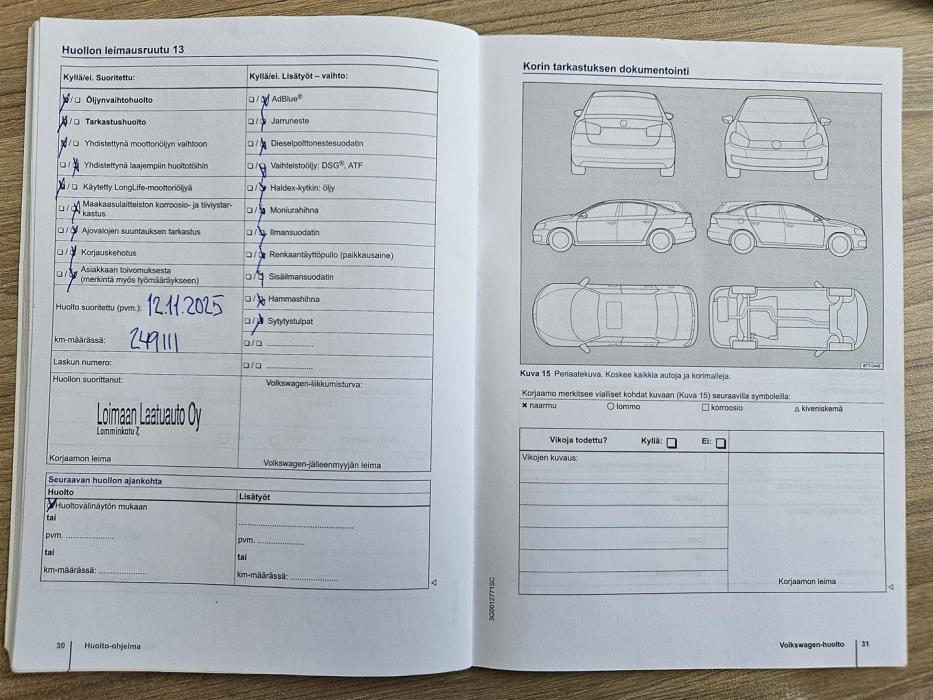 Huollon leimausruutu 13
Kyllä/ei. Suoritettu:
☒/☐ Öljynvaihtohuolto
☒/☐ Tarkastushuolto
☒/☐ Yhdistettynä moottoriöljyn vaihtoon
☐/☒ Yhdistettynä laajempiin huoltotöihin
☒/☐ Käytetty LongLife-moottoriöljyä
☐/☒ Maakaasulaitteiston korroosio- ja tiiviystar-
kastus
☐/☒ Ajovalojen suuntauksen tarkastus
☐/☒ Korjauskehotus
☐/☒ Asiakkaan toivomuksesta
(merkintä myös työmääräykseen)
Huolto suoritettu (pvm.): 12.11.2025
km-määrässä: 249111
Laskun numero:
Huollon suorittanut:
Loimaan Laatuauto Oy
Lamminkatu 7,
Korjaamon leima
Kyllä/ei. Lisätyöt – vaihto:
☐/☒ AdBlue®
☐/☒ Jarruneste
☐/☒ Dieselpolttonestesuodatin
☐/☒ Vaihteistoöljy: DSG®, ATF
☐/☒ Haldex-kytkin: öljy
☐/☒ Moniurahihna
☐/☒ Ilmansuodatin
☐/☒ Renkaantäyttöpullo (paikkausaine)
☐/☒ Sisäilmansuodatin
☐/☒ Hammashihna
☐/☒ Sytytystulpat
☐/☐ ....................
☐/☐ ....................
Volkswagen-liikkumisturva:
Volkswagen-jälleenmyyjän leima
Seuraavan huollon ajankohta
Huolto
☒ Huoltovälinäytön mukaan
tai
pvm. ....................
tai
km-määrässä: ....................
Lisätyöt
........................................
pvm. ....................
tai
km-määrässä: ....................
30 Huolto-ohjelma
3G0012771SC
Korin tarkastuksen dokumentointi
BTT-0449
Kuva 15 Periaatekuva. Koskee kaikkia autoja ja korimalleja.
Korjaamo merkitsee vialliset kohdat kuvaan (Kuva 15) seuraavilla symboleilla:
✖ naarmu ○ lommo □ korroosio △ kiveniskemä
Vikoja todettu? Kyllä: ☐ Ei: ☐
Vikojen kuvaus:
Korjaamon leima
Volkswagen-huolto 31